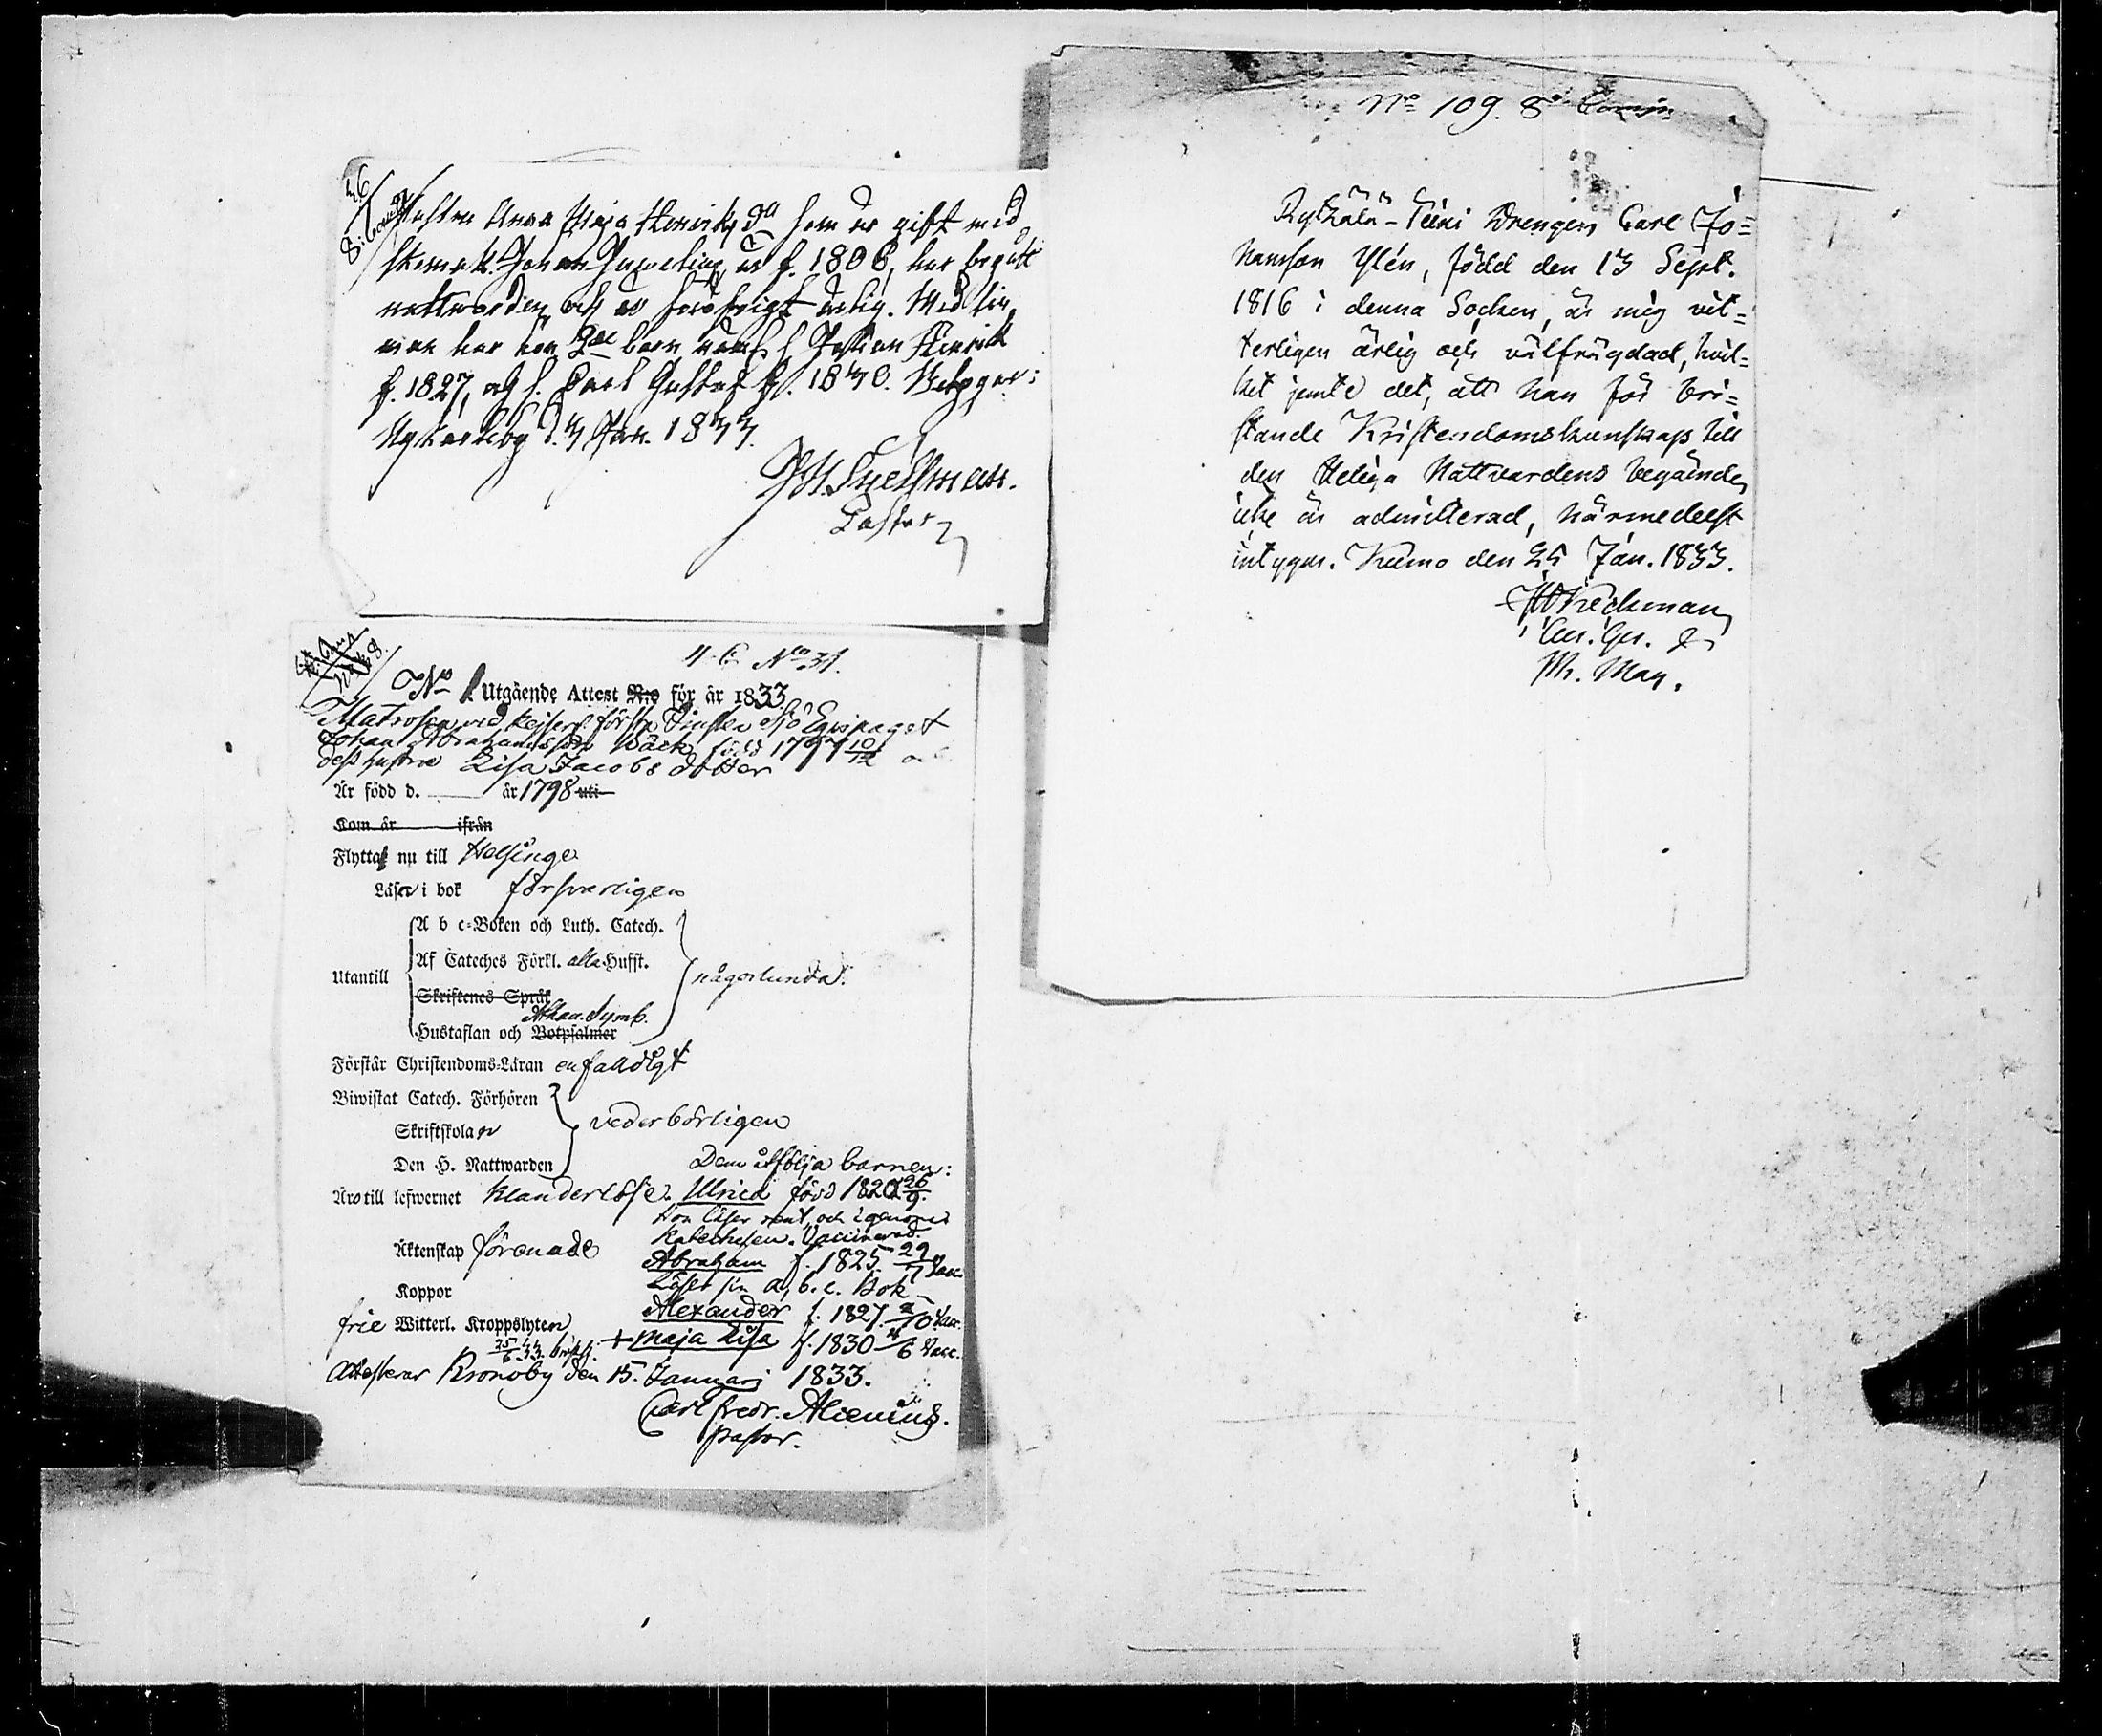 26
8:
Hustru Anna Maja Henriksdr som är gift med
Johan är f. 1806, har begått
nattvarden och är för öfrigt ärlig. Med sin
man har hon 2ne barn näml. s. Johan Henrik
f. 1827, och s. Carl Gustaf f. 1830. Betygar:
Nykarleby d. 4 Jan. 1833.
Snellman.
Pastor
4 C No 31.
No 1 Utgående Attest N:o för år 1833.
Matrosen vid Keiserl. första Finska Sjö Equipaget
Johan Abrahamsson Bäck född 1797 10/12 och
dess hustru Lisa Jacobsdotter
Är född d. år 1798 uti
Kom år ifrån
Flytta nu till Helsinge
Läser i bok försvarligen
A b c-Boken och Luth. Catech.
Af Cateches Förkl. alla Hufst.
Utantill någorlunda.
Skriftenes Språk
Athan. Symb.
Hustaflan och Botpsalmer
Förstår Christendoms-Läran enfaldigt
Biwistat Catech. Förhören
Skriftskolan vederbörligen
Den H. Nattwarden Dem åtfölja barnen:
Äro till lefwernet klanderlöse. Ulrica född 1820 26/9.
Hon läser rent och igenom
Katechesen. Vaccinerad.
Äktenskap förenade
Abraham f. 1825. 29/7 Vacc.
Läser sin a, b. c. Bok
Koppor
Alexander f. 1827. 2/10 Vacc.
frie Witterl. Kroppslyten
+ Maja Lisa f. 1830 4/6 Vacc.
25/6 33.
Attesterar Kronoby den 15. Januari 1833.
Carl Fredr. Alcenius.
pastor.
No 109. 8de Comp.
Drengen Carl Jo=
hansson Ylén, född den 13 Sept.
1816 i denna Socken, är mig vet=
terligen ärlig och välfrägdad, hvil=
ket jemte det, att han för bri=
stande Kristendomskunskap till
den Heliga Nattvardens begående
icke är admitterad, härmedelst
intygas. Kumo den 25 Jan. 1833.
Heckman